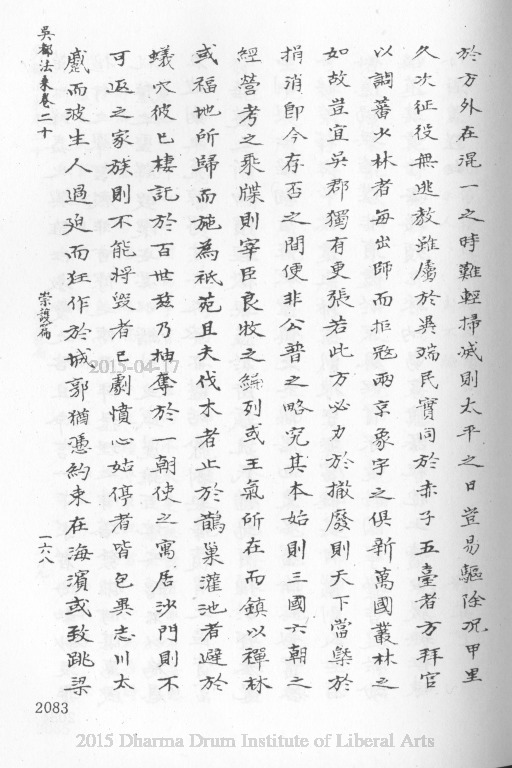 於方外在混一之時難輕掃滅則太平之日豈易驅除況甲里
久次征役無逃教雖屬於異端民實同於赤子五臺者方拜官
以調蕃少林者每出師而拒寇兩京象宇之俱新萬國叢林之
如故豈宜吳郡獨有更張若此方必力於撤廢則天下當槩於
捐消即今存否之間便非公普之略究其本始則三國六朝之
經營考之乘牒則宰臣良牧之綸列或王氣所在而鎮以禪林
或福地所歸而施為祇苑且夫伐木者止於鵲巢灌池者避於
蟻穴彼已棲託於百世茲乃抽奪於一朝使之寓居沙門則不
可返之家族則不能將毀者已劇憤心姑停者皆包異志川太
蹙而波生人過迫而狂作於城郭猶憑約束在海濱或致跳梁
吳都法乘卷二十
崇護篇
一六八
2083
2015-04-17
2015 Dharma Drum Institute of Liberal Arts